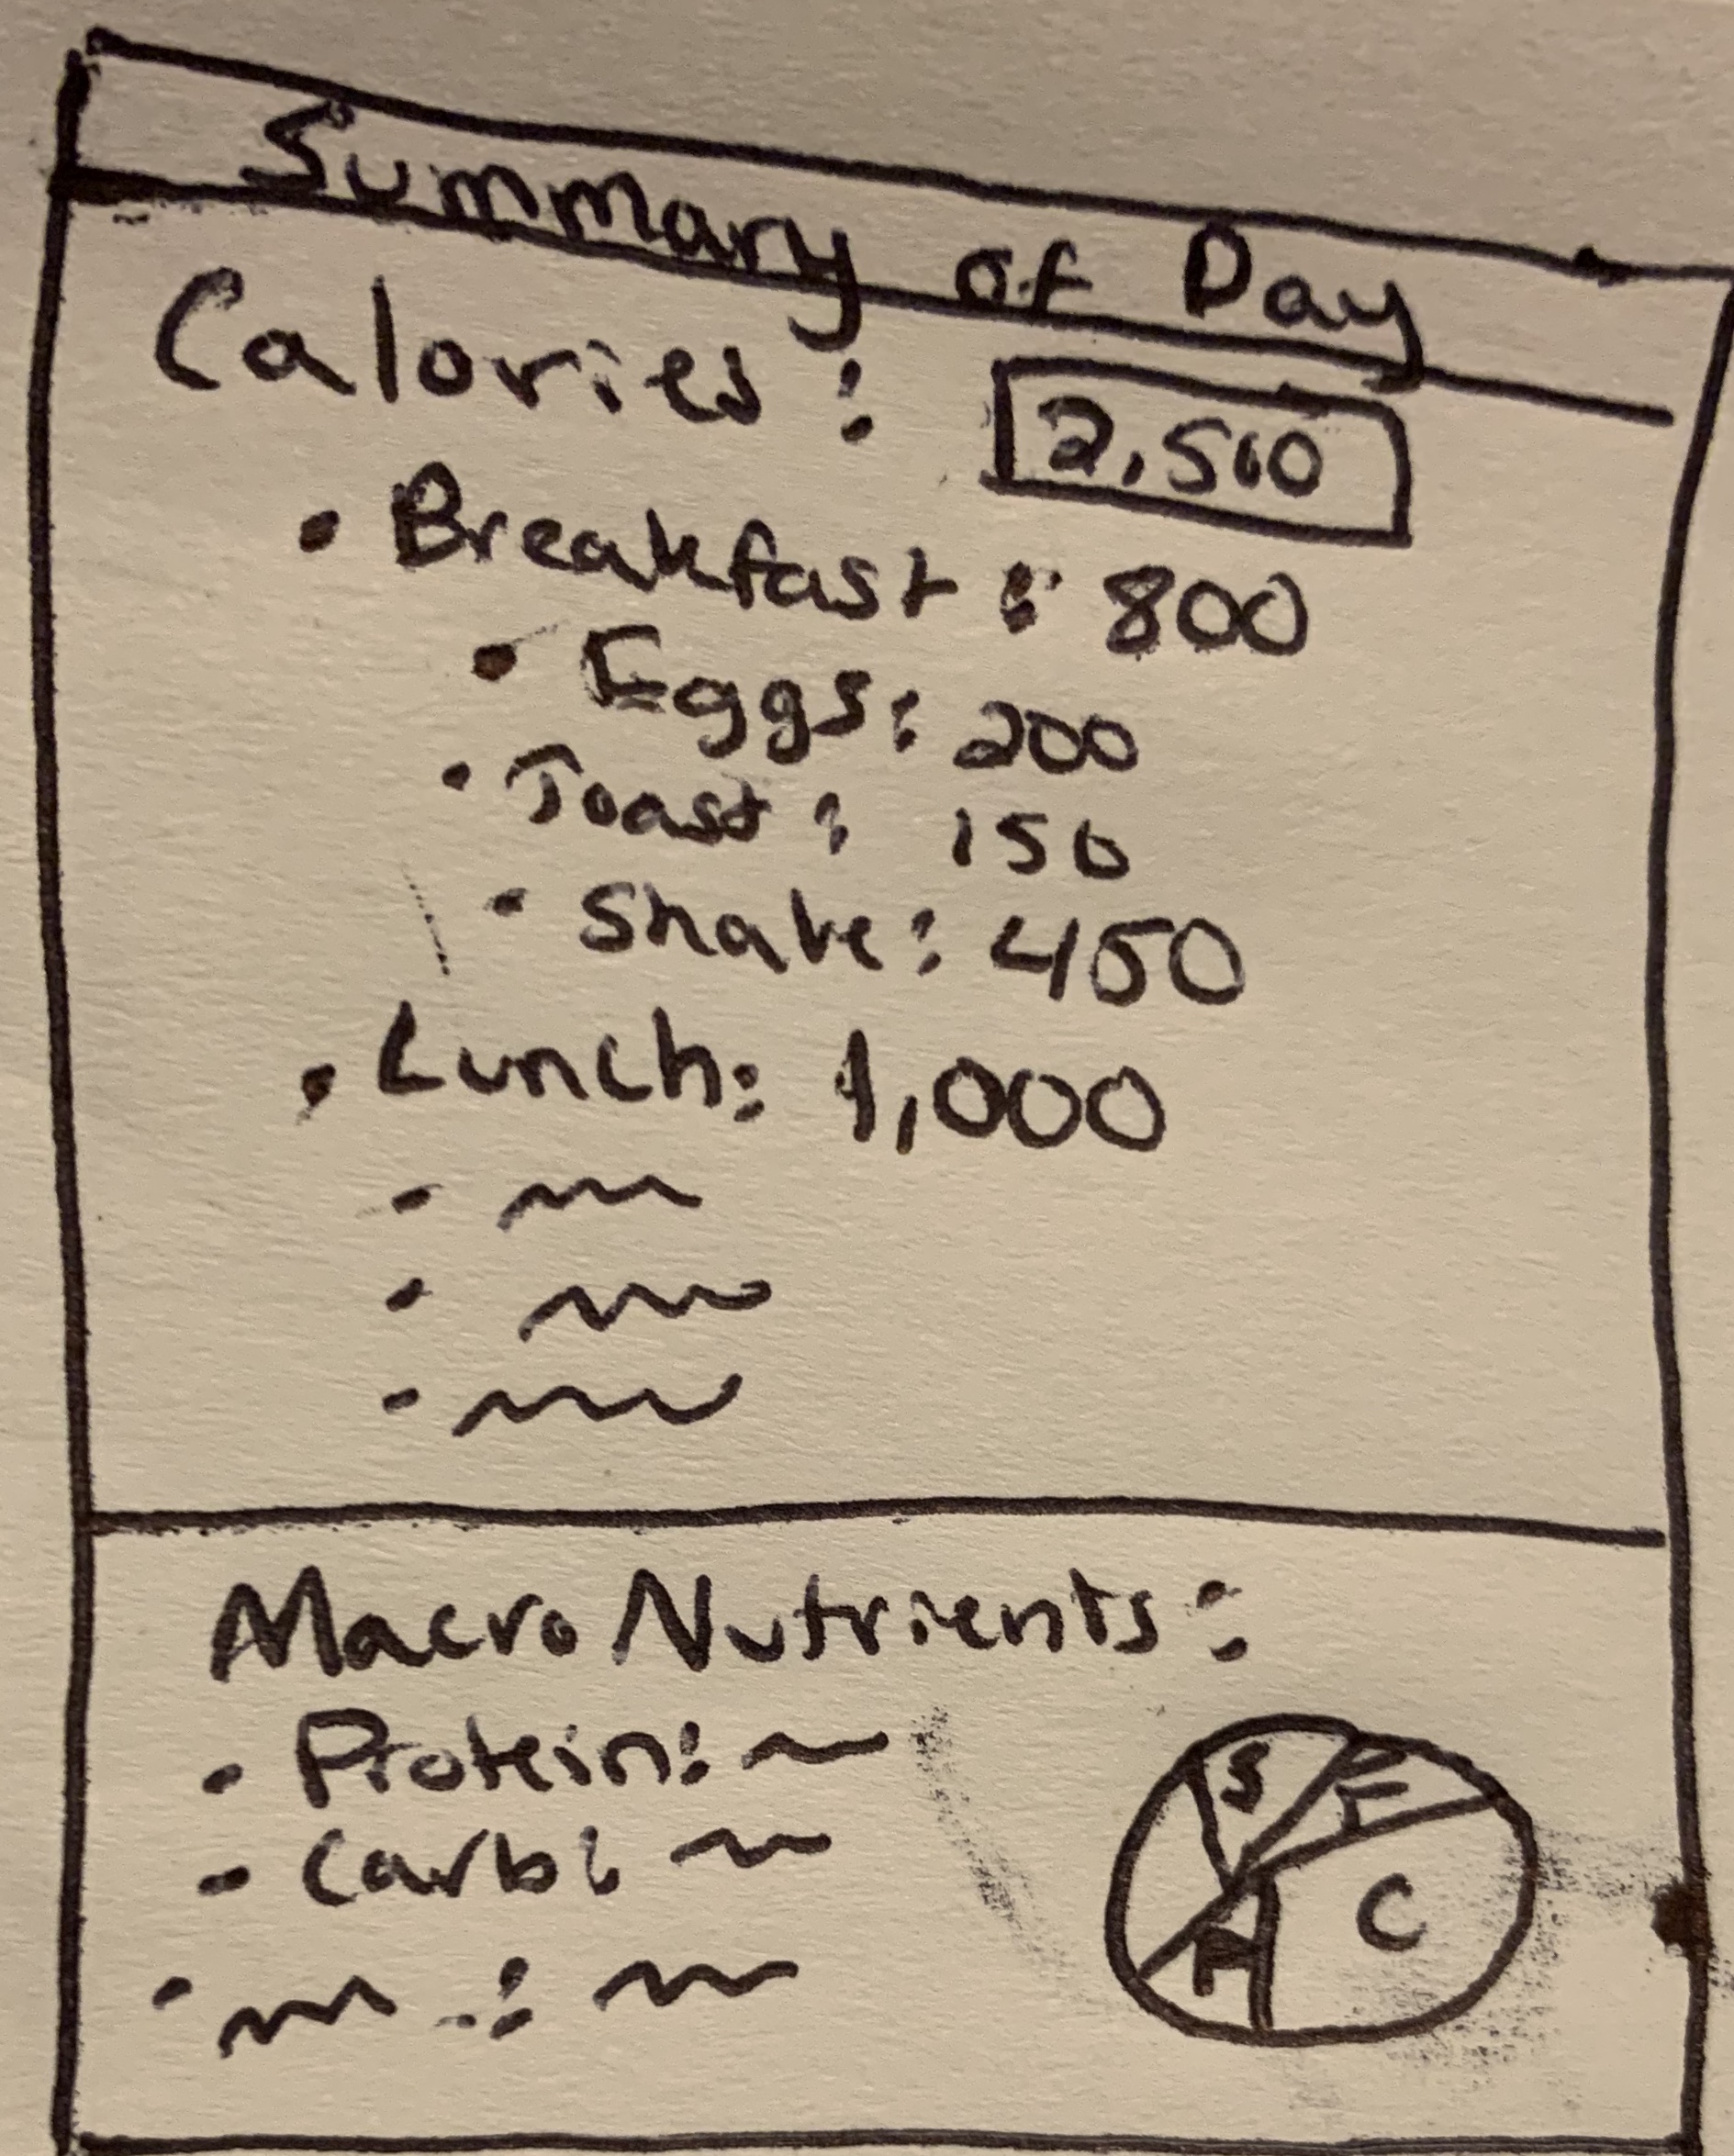 Summary of Day
Calories: 2,500
• Breakfast: 800
• Eggs: 200
• Toast: 150
• Shake: 450
• Lunch: 1,000
Macro Nutrients:
• Protein:
• Carb:
S
F
C